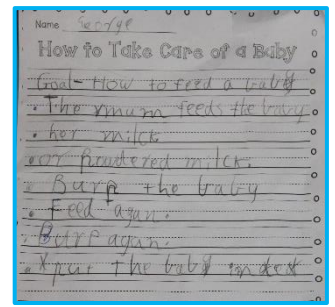 Name George
How to Take Care of a Baby
Goal- How to feed a baby
• The mum feeds the baby
• her milck
• or Powdered milck.
• Burp the baby
• Feed agan.
• Burp agan.
• put the baby in